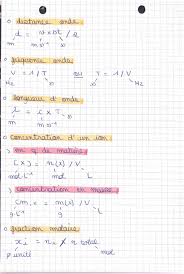 o distance onde
d = v × Δt / 2
m m.s⁻¹ s
o fréquence onde
V = 1/T ou T = 1/V
Hz s s Hz
o longueur d'onde
λ = c × T
m m.s⁻¹ s
o concentration d'un ion
) en q de matière
[X] = n(x) / V
mol.L⁻¹ mol L
) concentration en masse
g.L⁻¹ g L
o fraction molaire
xi = n total
mol